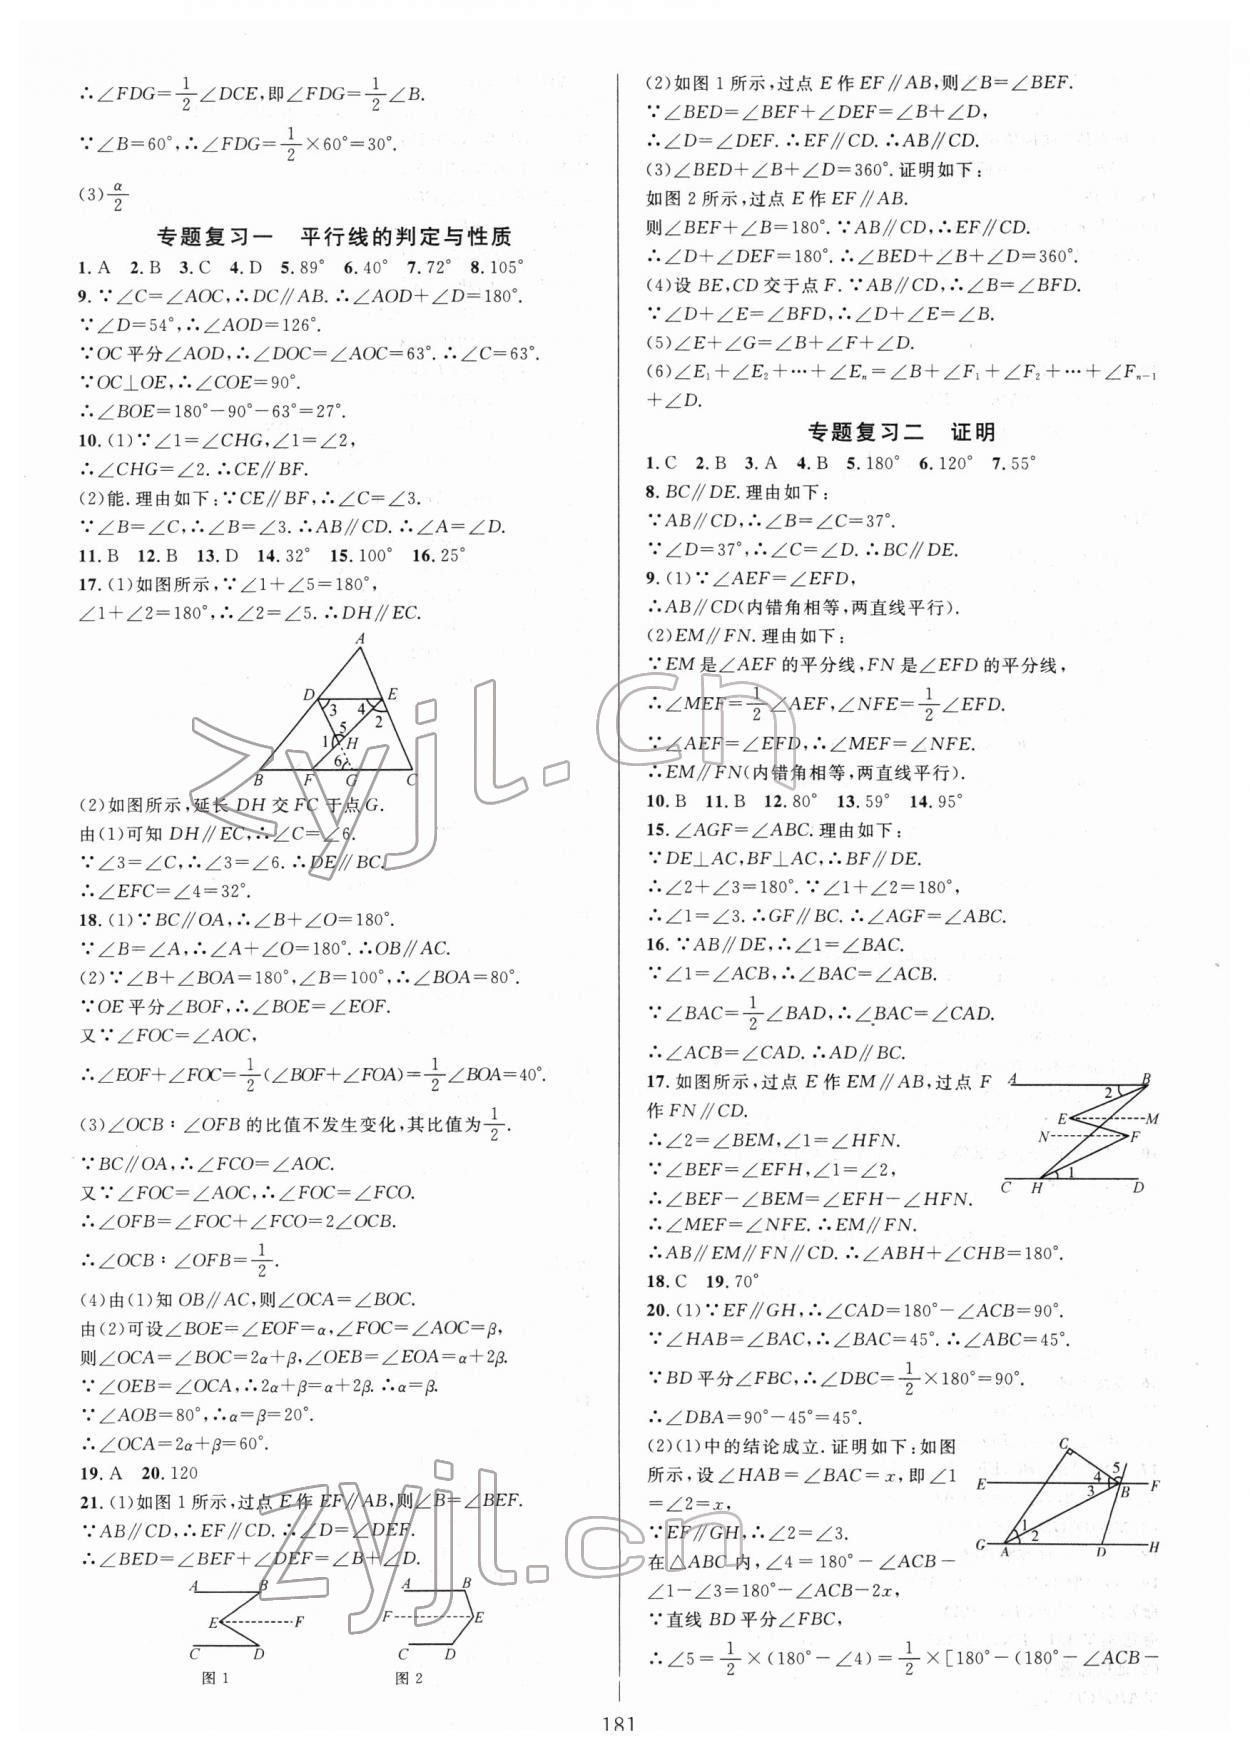 ∴∠FDG=1/2∠DCE,即∠FDG=1/2∠B.
∵∠B=60°,∴∠FDG=1/2×60°=30°.
(3)α/2
专题复习一 平行线的判定与性质
1. A 2. B 3. C 4. D 5. 89° 6. 40° 7. 72° 8. 105°
9. ∵∠C=∠AOC,∴DC∥AB. ∴∠AOD+∠D=180°.
∵∠D=54°,∴∠AOD=126°.
∵OC平分∠AOD,∴∠DOC=∠AOC=63°. ∴∠C=63°.
∵OC⊥OE,∴∠COE=90°.
∴∠BOE=180°-90°-63°=27°.
10. (1)∵∠1=∠CHG,∠1=∠2,
∴∠CHG=∠2. ∴CE∥BF.
(2)能. 理由如下:∵CE∥BF,∴∠C=∠3.
∵∠B=∠C,∴∠B=∠3. ∴AB∥CD. ∴∠A=∠D.
11. B 12. B 13. D 14. 32° 15. 100° 16. 25°
17. (1)如图所示,∵∠1+∠5=180°,
∠1+∠2=180°,∴∠2=∠5. ∴DH∥EC.
A
D E
3 4 2
5
1 H
6
B F G C
(2)如图所示,延长DH交FC于点G.
由(1)可知DH∥EC,∴∠C=∠6.
∵∠3=∠C,∴∠3=∠6. ∴DE∥BC.
∴∠EFC=∠4=32°.
18. (1)∵BC∥OA,∴∠B+∠O=180°.
∵∠B=∠A,∴∠A+∠O=180°. ∴OB∥AC.
(2)∵∠B+∠BOA=180°,∠B=100°,∴∠BOA=80°.
∵OE平分∠BOF,∴∠BOE=∠EOF.
又∵∠FOC=∠AOC,
∴∠EOF+∠FOC=1/2(∠BOF+∠FOA)=1/2∠BOA=40°.
(3)∠OCB∶∠OFB的比值不发生变化,其比值为1/2.
∵BC∥OA,∴∠FCO=∠AOC.
又∵∠FOC=∠AOC,∴∠FOC=∠FCO.
∴∠OFB=∠FOC+∠FCO=2∠OCB.
∴∠OCB∶∠OFB=1/2.
(4)由(1)知OB∥AC,则∠OCA=∠BOC.
由(2)可设∠BOE=∠EOF=α,∠FOC=∠AOC=β,
则∠OCA=∠BOC=2α+β,∠OEB=∠EOA=α+2β.
∵∠OEB=∠OCA,∴2α+β=α+2β. ∴α=β.
∵∠AOB=80°,∴α=β=20°.
∴∠OCA=2α+β=60°.
19. A 20. 120
21. (1)如图1所示,过点E作EF∥AB,则∠B=∠BEF.
∵AB∥CD,∴EF∥CD. ∴∠D=∠DEF.
∴∠BED=∠BEF+∠DEF=∠B+∠D.
A B A B
E F F E
C D C D
图1 图2
(2)如图1所示,过点E作EF∥AB,则∠B=∠BEF.
∵∠BED=∠BEF+∠DEF=∠B+∠D,
∴∠D=∠DEF. ∴EF∥CD. ∴AB∥CD.
(3)∠BED+∠B+∠D=360°. 证明如下:
如图2所示,过点E作EF∥AB.
则∠BEF+∠B=180°. ∵AB∥CD,∴EF∥CD.
∴∠D+∠DEF=180°. ∴∠BED+∠B+∠D=360°.
(4)设BE,CD交于点F. ∵AB∥CD,∴∠B=∠BFD.
∵∠D+∠E=∠BFD,∴∠D+∠E=∠B.
(5)∠E+∠G=∠B+∠F+∠D.
(6)∠E₁+∠E₂+⋯+∠Eₙ=∠B+∠F₁+∠F₂+⋯+∠Fₙ₋₁
+∠D.
专题复习二 证明
1. C 2. B 3. A 4. B 5. 180° 6. 120° 7. 55°
8. BC∥DE. 理由如下:
∵AB∥CD,∴∠B=∠C=37°.
∵∠D=37°,∴∠C=∠D. ∴BC∥DE.
9. (1)∵∠AEF=∠EFD,
∴AB∥CD(内错角相等,两直线平行).
(2)EM∥FN. 理由如下:
∵EM是∠AEF的平分线,FN是∠EFD的平分线,
∴∠MEF=1/2∠AEF,∠NFE=1/2∠EFD.
∵∠AEF=∠EFD,∴∠MEF=∠NFE.
∴EM∥FN(内错角相等,两直线平行).
10. B 11. B 12. 80° 13. 59° 14. 95°
15. ∠AGF=∠ABC. 理由如下:
∵DE⊥AC,BF⊥AC,∴BF∥DE.
∴∠2+∠3=180°. ∵∠1+∠2=180°,
∴∠1=∠3. ∴GF∥BC. ∴∠AGF=∠ABC.
16. ∵AB∥DE,∴∠1=∠BAC.
∵∠1=∠ACB,∴∠BAC=∠ACB.
∵∠BAC=1/2∠BAD,∴∠BAC=∠CAD.
∴∠ACB=∠CAD. ∴AD∥BC.
17. 如图所示,过点E作EM∥AB,过点F
作FN∥CD.
∴∠2=∠BEM,∠1=∠HFN.
∵∠BEF=∠EFH,∠1=∠2,
∴∠BEF-∠BEM=∠EFH-∠HFN.
∴∠MEF=∠NFE. ∴EM∥FN.
∴AB∥EM∥FN∥CD. ∴∠ABH+∠CHB=180°.
A B
2
E M
N F
1
C H D
18. C 19. 70°
20. (1)∵EF∥GH,∴∠CAD=180°-∠ACB=90°.
∵∠HAB=∠BAC,∴∠BAC=45°. ∴∠ABC=45°.
∵BD平分∠FBC,∴∠DBC=1/2×180°=90°.
∴∠DBA=90°-45°=45°.
(2)(1)中的结论成立. 证明如下:如图
所示,设∠HAB=∠BAC=x,即∠1
=∠2=x,
∵EF∥GH,∴∠2=∠3.
在△ABC内,∠4=180°-∠ACB-
∠1-∠3=180°-∠ACB-2x,
∵直线BD平分∠FBC,
∴∠5=1/2×(180°-∠4)=1/2×[180°-(180°-∠ACB-
C
5
E 4 F
3 B
1
2
G A D H
181
zyjl.cn
zyjl.cn